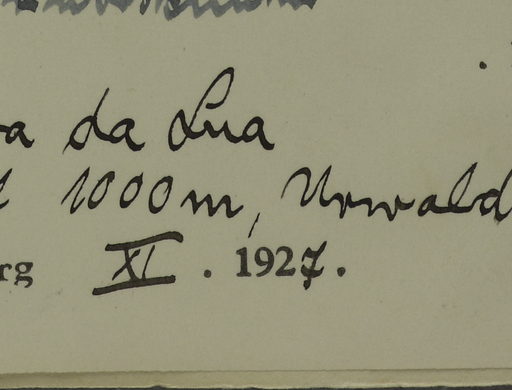 a da Lua
1000m, Urwald
rg XI. 1927.